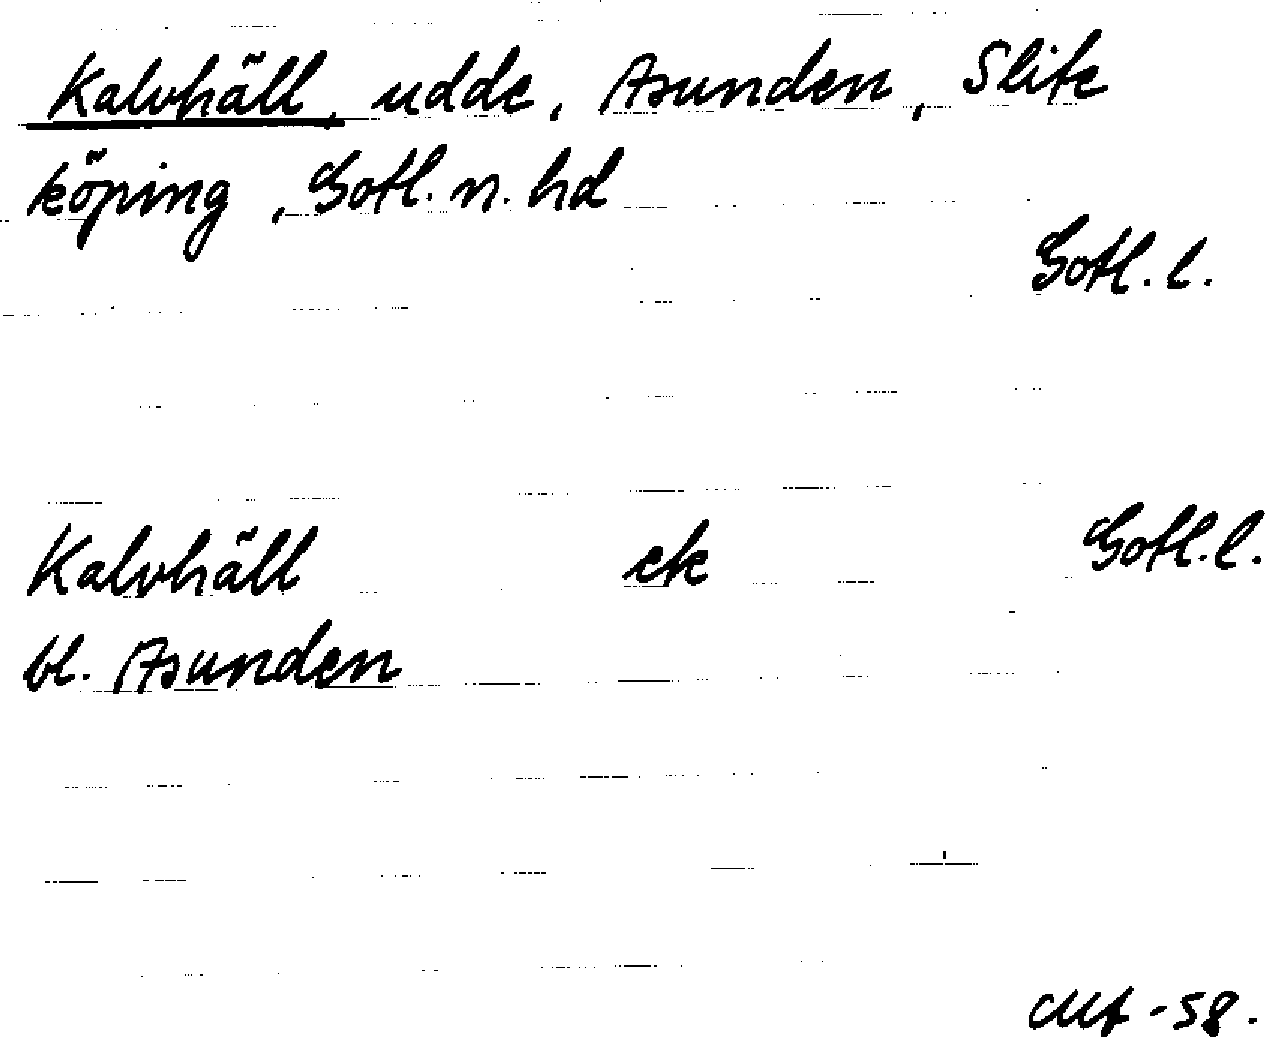 Kalvhäll, udde, Asunden, Slite
köping, Gotl. n. hd
Gotl. l.
Kalvhäll ek Gotl. l.
bl. Asunden
-58.